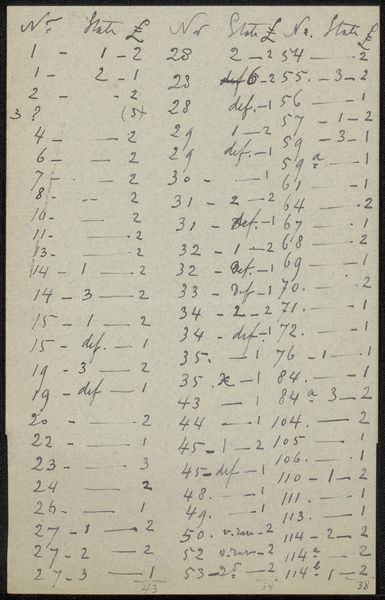 No State £
1 - 1 - 2
1 - 2 - 1
2 - - 2
3 ? (5)
4 - — 2
6 - — 2
7 - — 2
8 - -- 2
10 - — 2
11 - — 2
13 - — 2
14 - 1 — 2
14 - 3 — 2
15 - 1 — 2
15 - def. — 1
19 - 3 — 2
19 - def — 1
20 — 2
22 - — 1
23 - — 3
24 — 2
26 - — 1
27 - 1 — 2
27 - 2 — 2
27 - 3 — 1
43
No State £
28 2 - 2
28 def - 2
28 def. - 1
29 1 - 2
29 def. - 1
30 - — 1
31 - 2 - 2
31 - def. - 1
32 - 1 - 2
32 - def. - 1
33 - def - 1
34 - 2 - 2
34 - def. - 1
35. — 1
35. - 1
43 — 1
44 — 1
45 - 1 - 2
45 - def - 1
48. — 1
49. — 1
50. - 2
52 - 2
53 - 2
34
No. State £
54 — 2
55. - 3 - 2
56 — 1
57 - 1 - 2
59 - 3 - 1
59a — 1
61 — 1
64 — 2
67 — 1
68 — 2
69 — 1
70. — 2
71. — 1
72. — 1
76 - 1 — 1
84. — 1
84a 3 - 2
104. — 2
105 — 1
106. — 1
110 - 1 - 2
111. — 1
113. — 1
114 - 2 - 2
114a — 2
114b 1 - 2
38